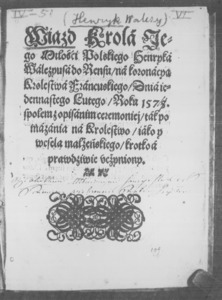 IV - 51
(Henryk Walezy)
VI
Wiazd Krolá Je-
go Miłośći Polskiego Henryká
Wálezyusá do Rensu / ná koronácyą
Krolestwá Fráncuskiego / Dniá ie-
dennastego Lutego / Roku 157
społem z opisánim ceremoniey / ták po-
mázánia ná Krolestwo / iáko y
wesela małżeńskiego / krotko á
prawdźiwie vczyniony.